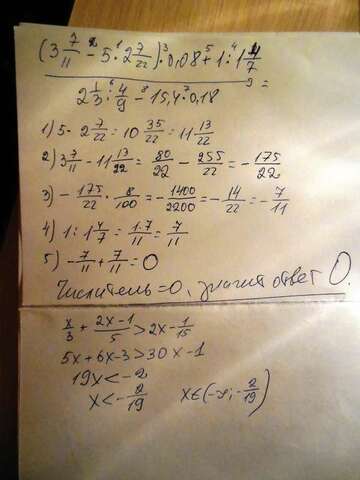 (3 7/11 - 5 · 2 7/22) · 0,08 + 1 : 1 4/7
2 1/3 : 4/9 - 15,4 · 0,18 =
1) 5 · 2 7/22 = 10 35/22 = 11 13/22
2) 3 7/11 - 11 13/22 = 80/22 - 255/22 = - 175/22
3) - 175/22 · 8/100 = - 1400/2200 = - 14/22 = - 7/11
4) 1 : 1 4/7 = 1·7/11 = 7/11
5) - 7/11 + 7/11 = 0
Числитель = 0, значит ответ 0.
x/3 + 2x-1/5 > 2x - 1/15
5x + 6x - 3 > 30x - 1
19x < - 2
x < - 2/19 x ∈ (-∞; - 2/19)